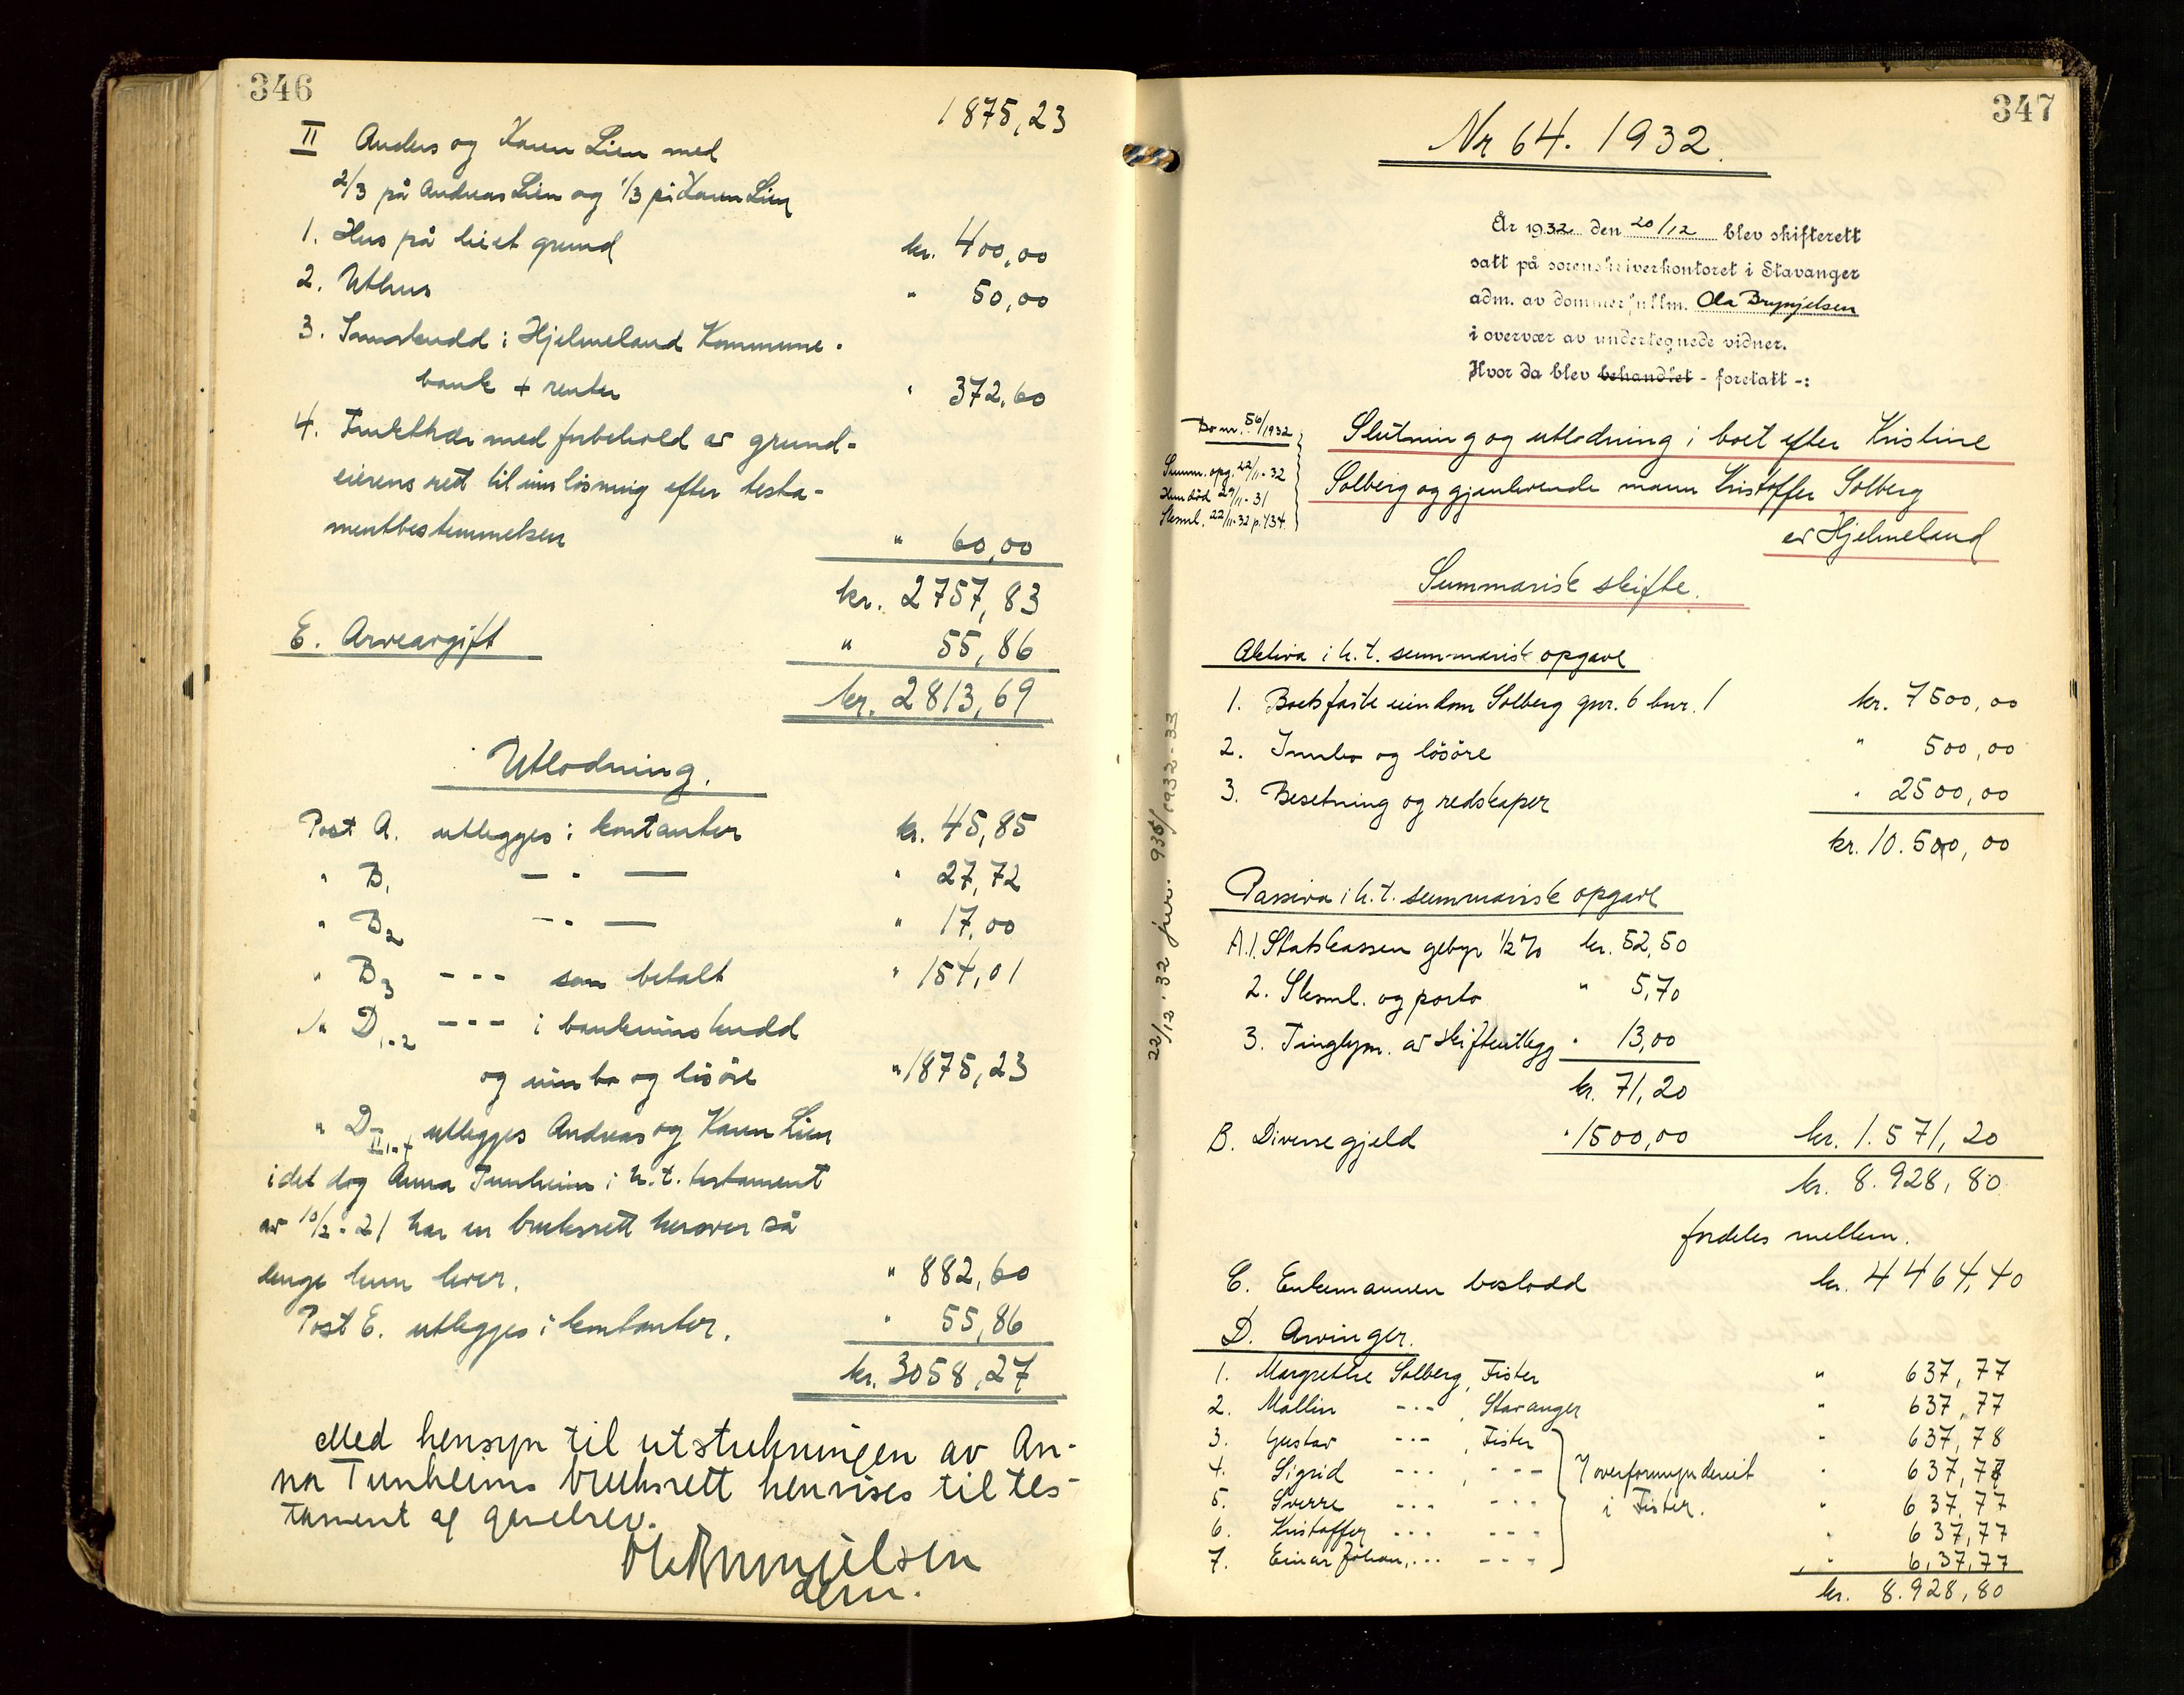 346
1875,23
II Anders og Karen Lien med
2/3 på Andreas Lien og 1/3 på Karen Lien
1. Hus på leiet grund kr. 400,00
2. Uthus " 50,00
3. Innskudd i Hjelmeland Kommune-
bank + renter " 372,60
4. Frukttrær med forbehold av grund-
eierens rett til innløsning efter testa-
mentbestemmelsen " 60,00
kr. 2757,83
E. Arveavgift " 55,86
kr. 2813,69
Utlodning.
Post A. utlegges i kontanter kr. 45,85
" B1 — " — " 27,72
" B2 — " — " 17,00
" B3 --- som betalt " 154,01
" D1-2 --- i bankinnskudd
og innbo og løsøre " 1875,23
" D II 1-4 utlegges Andreas og Karen Lien
idet dog Anna Tunheim i h.t. testament
av 10/2-21 har en bruksrett herover så
lenge hun lever. " 882,60
Post E. utlegges i kontanter. " 55,86
kr. 3058,27
Med hensyn til utstrekningen av An-
na Tunheims bruksrett henvises til tes-
tament og gavebrev.
Ola Brynjelsen
dfm.
347
Nr 64. 1932.
År 1932 den 20/12 blev skifterett
satt på sorenskriverkontoret i Stavanger
adm. av dommerfullm. Ola Brynjelsen
i overvær av undertegnede vidner.
Hvor da blev behandlet - foretatt -:
Bo nr. 56/1932
Summ. opg. 22/11-32
Hun død 29/11-31
Sksml. 22/11-32 p. 434.
Slutning og utlodning i boet efter Kristine
Solberg og gjenlevende mann Kristoffer Solberg
av Hjelmeland
Summarisk skifte.
Aktiva i h.t. summarisk opgave
1. Boets faste eiendom Solberg gnr. 6 bnr. 1 kr. 7500,00
2. Innbo og løsøre " 500,00
3. Besetning og redskaper " 2500,00
kr. 10.500,00
Passiva i h.t. summarisk opgave
A.1. Statskassen gebyr 1/2 % kr. 52,50
2. Sksml. og porto " 5,70
3. Tinglysn. av skifteutlegg " 13,00
kr. 71,20
B. Diverse gjeld " 1500,00 kr. 1.571,20
kr. 8.928,80
fordeles mellem.
C. Enkemannen boslodd kr. 4464,40
D. Arvinger.
1. Margrethe Solberg, Fister " 637,77
2. Mallin --- , Stavanger " 637,77
3. Gustav --- , Fister " 637,78
4. Sigrid --- , --- } overformynderiet " 637,77
5. Sverre --- --- i Fister. " 637,77
6. Kristoffer --- --- " 637,77
7. Einar Johan, --- --- " 637,77
kr. 8.928,80
22/12 '32 jnr. 935/1932-33